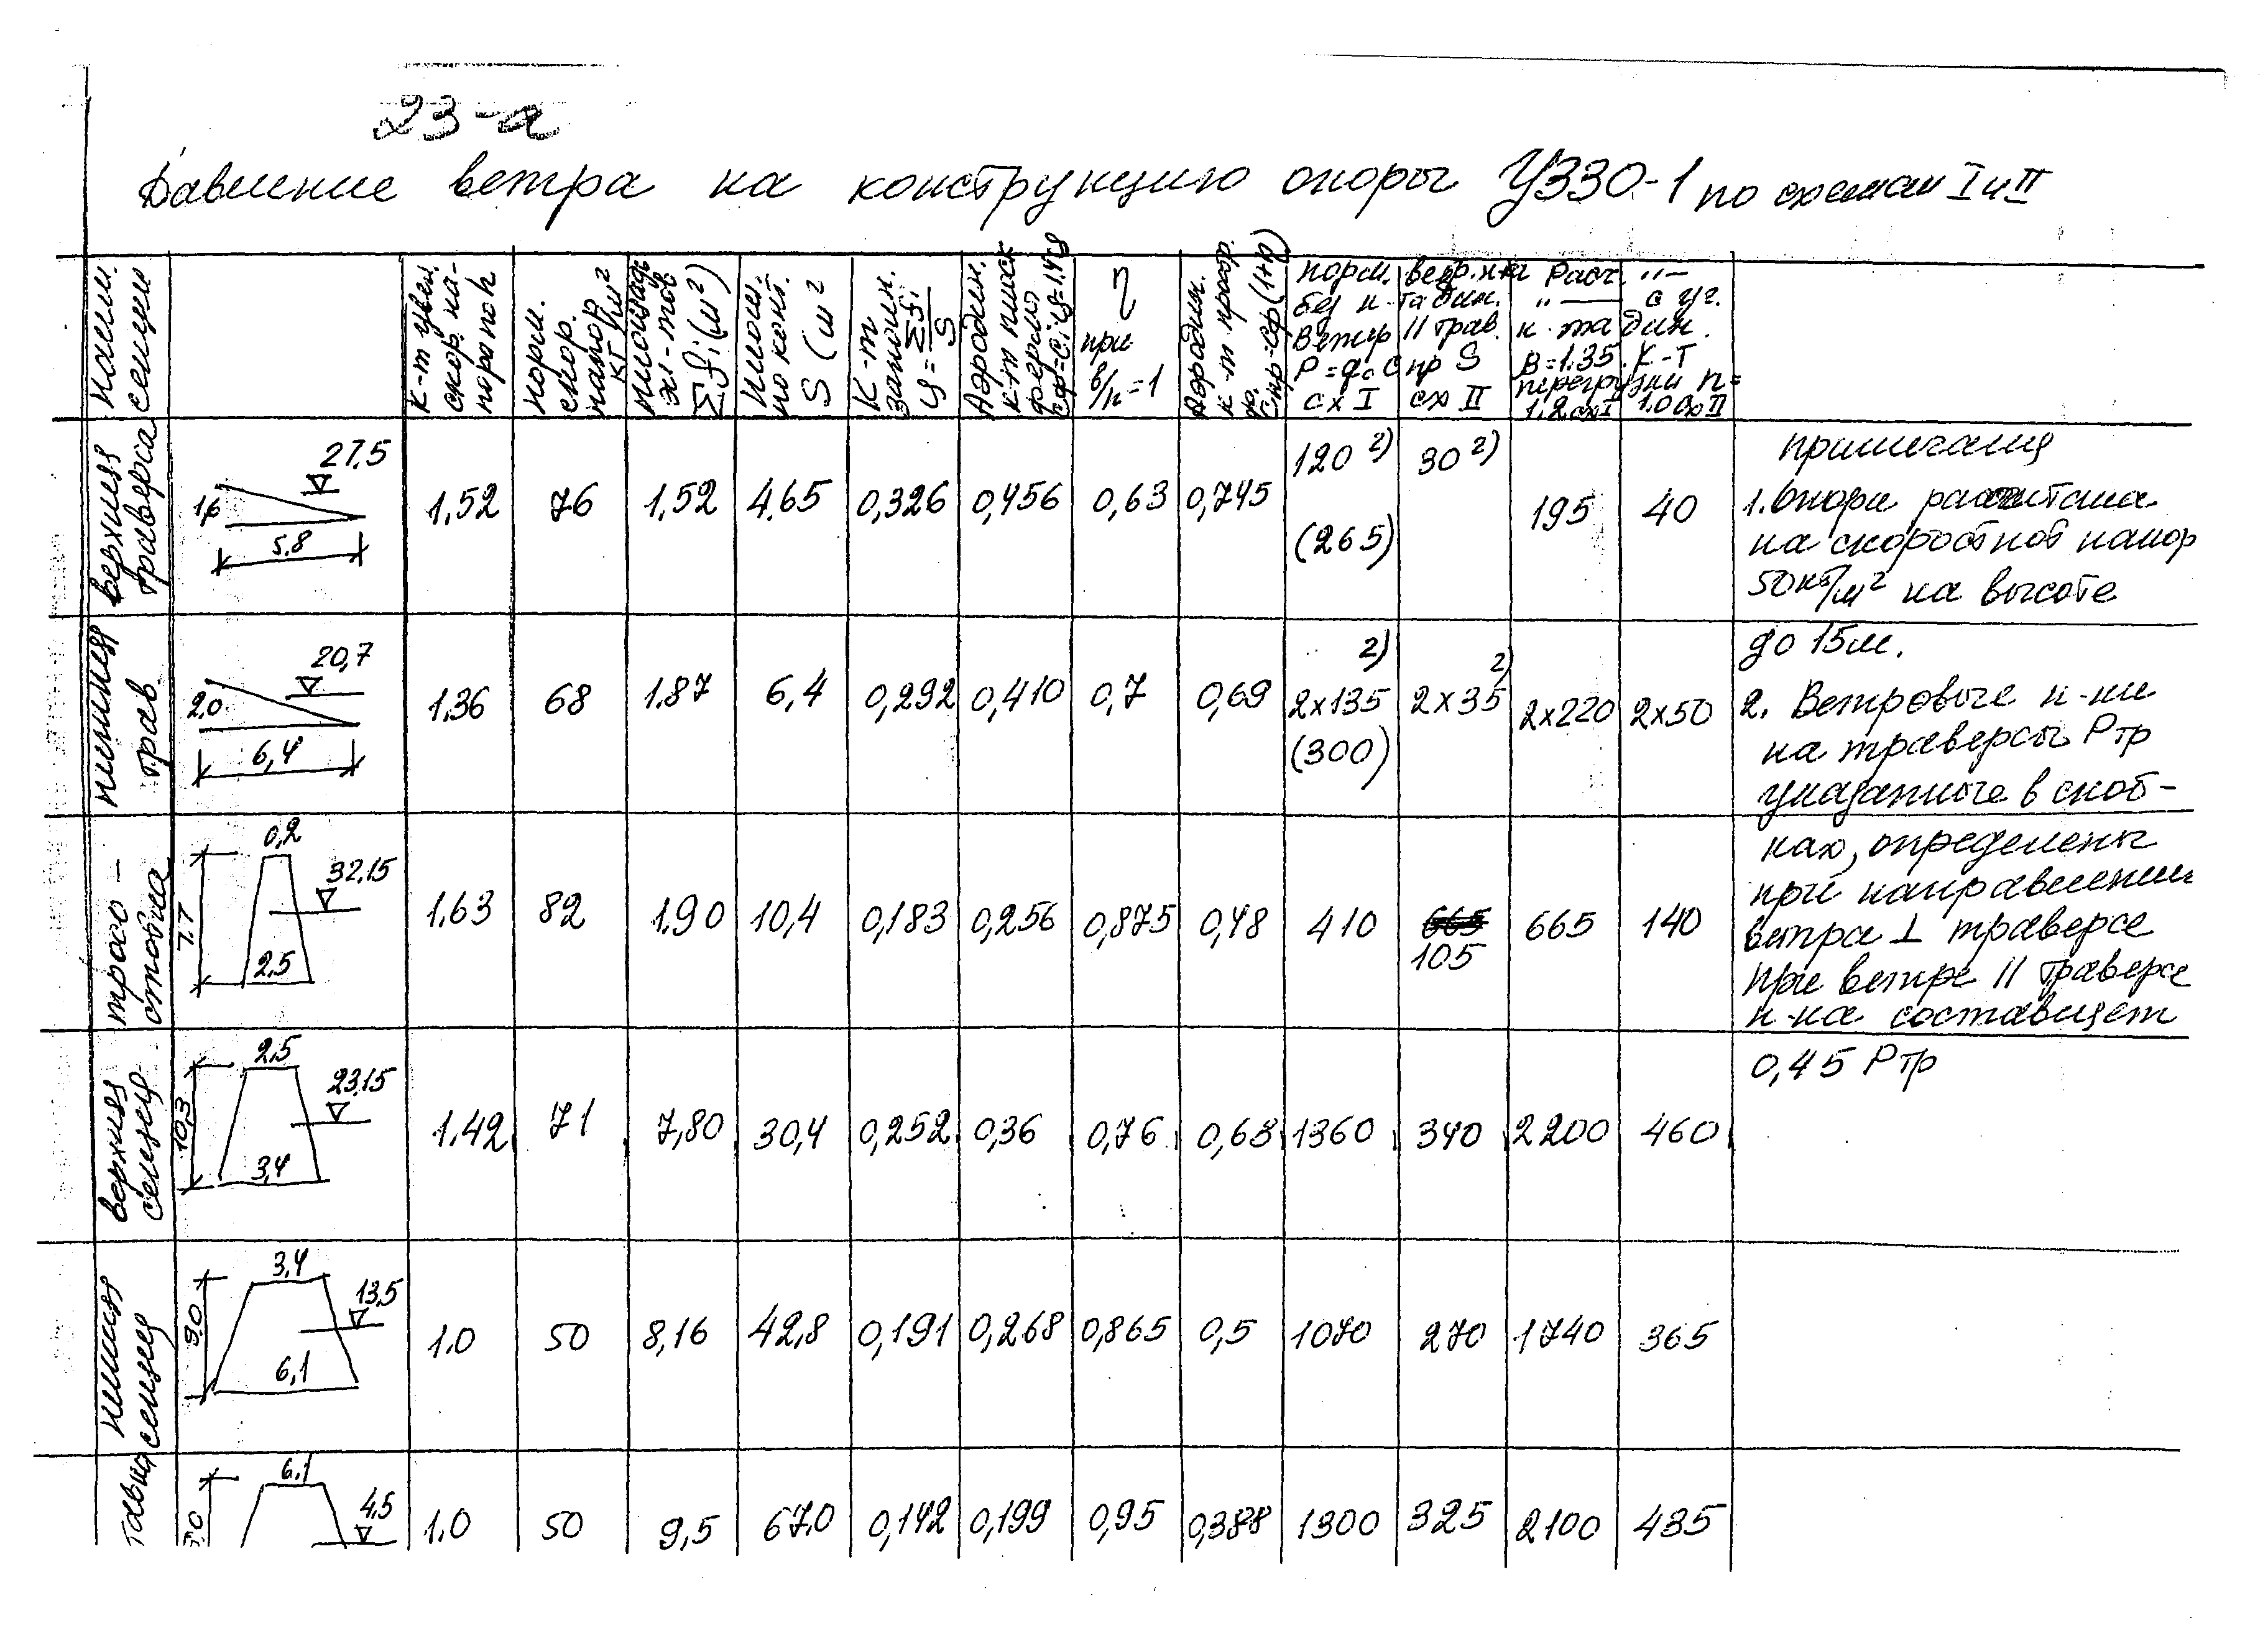 23-а
Давление ветра на конструкцию опоры У330-1 по схемам I и II
наим. секции
К-т увел. скор. на-пора по h
норм. скор. напор кГ/м²
площадь эл-тов Σfi (м²)
площ. по конт. S (м²
К-т заполн. φ = Σfi/S
Аэродин. к-т плоск фермы Cф=Ci φ=1.4φ
η при в/h =1
Аэродин. к-т простр. Cпр=Cф(1+η)
норм. ветр. н-ка
без к-та дин.
Ветер // трав.
P = q·Cпр S
сх I сх II
Расч. "—
" — с уч.
к-та дин.
В=1.35 К-т
перегрузки n=
1.2 сх I 1.0 сх II
верхняя траверса 1,6 5.8 27.5 1.52 76 1.52 4.65 0,326 0,456 0,63 0,745 120 2) (265) 30 2) 195 40
нижняя трав. 2.0 6,4 20,7 1.36 68 1.87 6,4 0,292 0,410 0,7 0,69 2x135 2) (300) 2x35 2) 2x220 2x50
тросо-стойка 0,2 7.7 2.5 32.15 1.63 82 1.90 10,4 0,183 0,256 0,875 0,48 410 665 105 665 140
верхняя секция 2.5 10,3 3,4 23.15 1.42 71 7,80 30,4 0,252 0,36 0,76 0,63 1360 340 2200 460
нижняя секция 3,4 9.0 6,1 13.5 1.0 50 8,16 42,8 0,191 0,268 0,865 0,5 1070 270 1740 365
6.1 4.5 1.0 50 9,5 67.0 0,142 0,199 0,95 0,388 1300 325 2100 435
примечания
1. Опора расчитана
на скоростной напор
50 кГ/м² на высоте
до 15м.
2. Ветровые н-ки
на траверсы Pтр
указанные в скоб-
ках, определены
при направлении
ветра ⊥ траверсе
При ветре // траверсе
н-ка составляет
0,45 Pтр